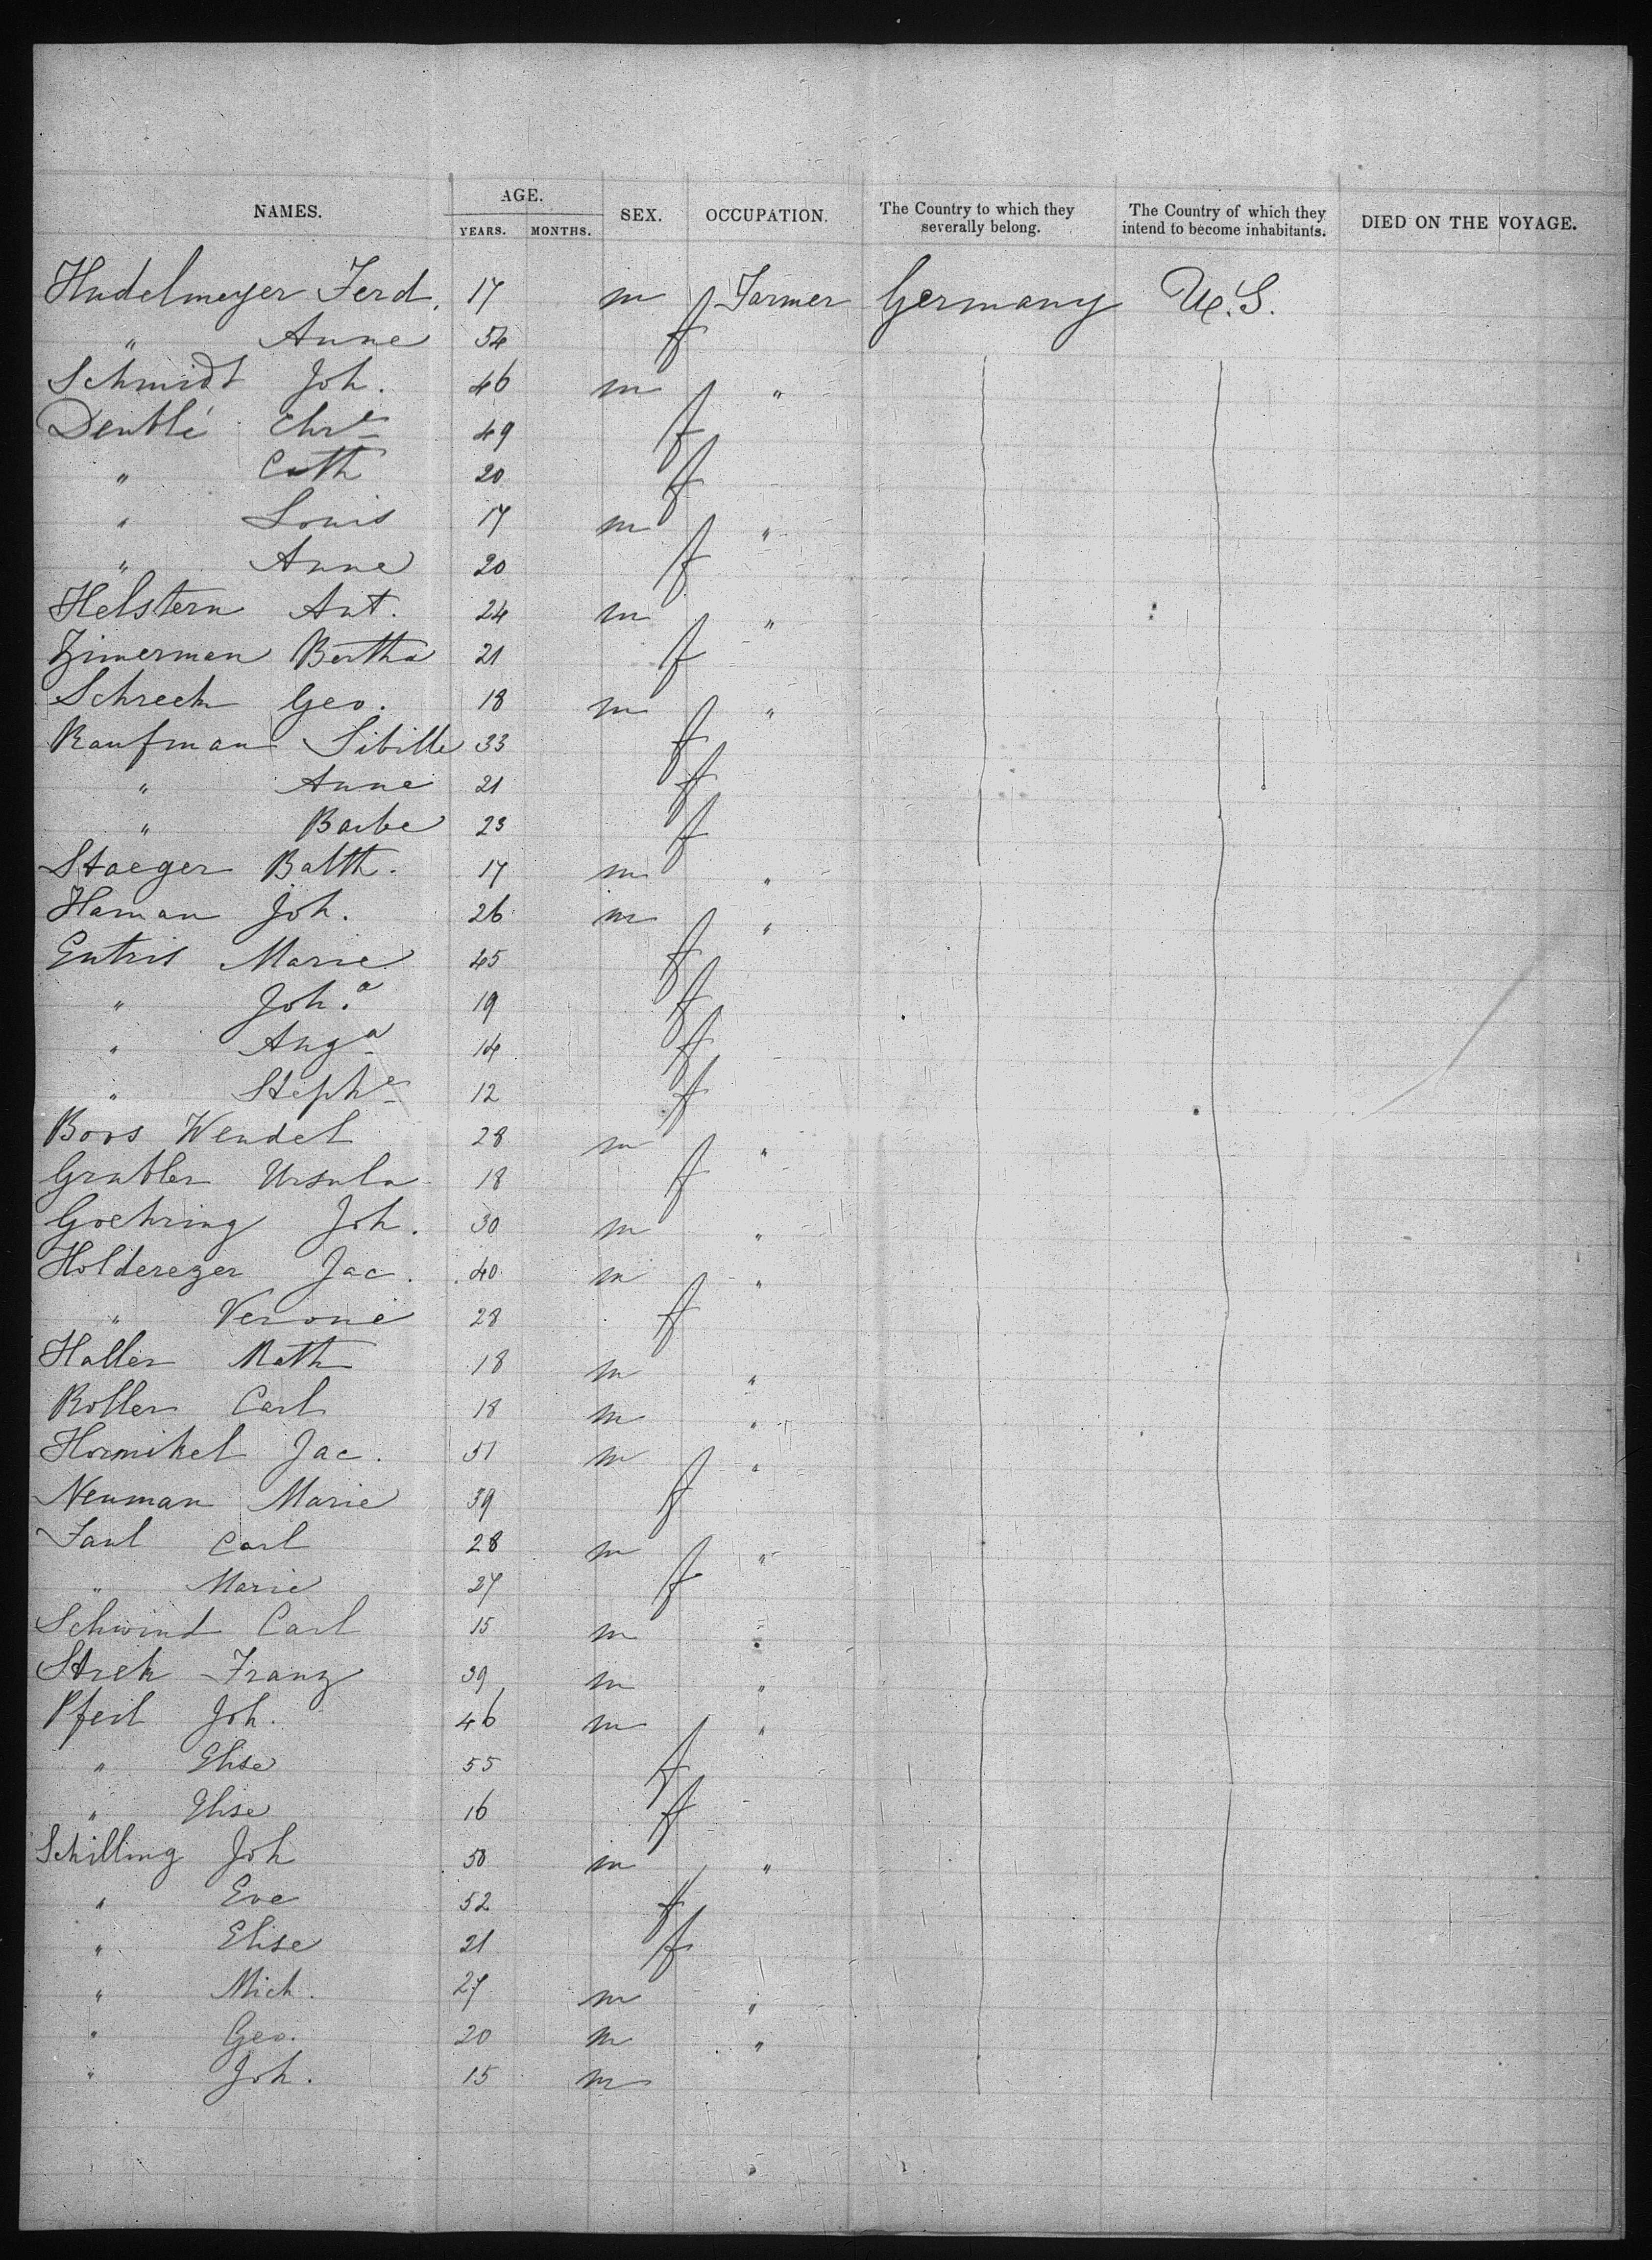 NAMES. AGE. SEX. OCCUPATION. The Country to which they severally belong. The Country of which they intend to become inhabitants. DIED ON THE VOYAGE.
YEARS. MONTHS.
Hudelmeyer Ferd. 17 m Farmer Germany U.S.
" Anne 54 f
Schmidt Joh. 46 m "
Deublé Chre 49 f
" Cath 20 f
" Louis 17 m "
" Anne 20 f
Helstern Ant. 24 m "
Zimerman Bertha 21 f
Schreck Geo. 18 m "
Kaufman Sibille 33 f
" Anne 21 f
" Barbe 23 f
Staeger Balth. 17 m "
Haman Joh. 26 m "
Entris Marie 45 f
" Joh.a 19 f
" Auga 14 f
" Stephe 12 f
Boos Wendel 28 m "
Grubler Ursula 18 f
Goehring Joh. 30 m "
Holderezer Jac. 40 m "
" Veronie 28 f
Haller Math 18 m "
Roller Carl 18 m "
Hormikel Jac. 51 m "
Neuman Marie 39 f
Faul Carl 28 m "
" Marie 27 f
Schwind Carl 15 m "
Strek Franz 39 m "
Pfeil Joh. 46 m "
" Elise 55 f
" Elise 16 f
Schilling Joh 50 m "
" Eve 52 f
" Elise 21 f
" Mich. 27 m "
" Geo. 20 m "
" Joh. 15 m